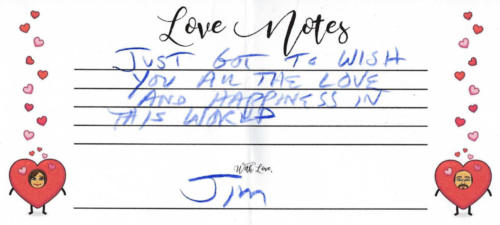 Love Notes
JUST GOT TO WISH
YOU ALL THE LOVE
AND HAPPINESS IN
THIS WORLD
With Love,
Jim